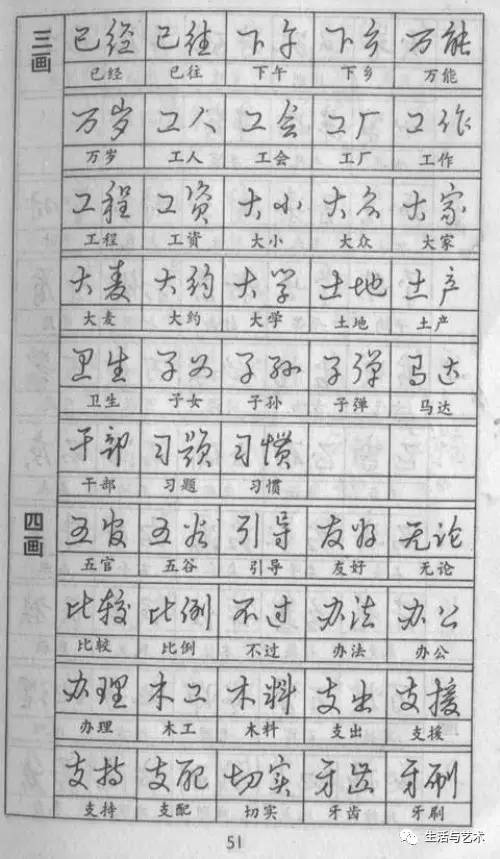 三画
已经 已往 下午 下乡 万能
已经 已往 下午 下乡 万能
万岁 工人 工会 工厂 工作
万岁 工人 工会 工厂 工作
工程 工资 大小 大众 大家
工程 工资 大小 大众 大家
大麦 大约 大学 土地 土产
大麦 大约 大学 土地 土产
卫生 子女 子孙 子弹 马达
卫生 子女 子孙 子弹 马达
干部 习题 习惯
干部 习题 习惯
四画
五官 五谷 引导 友好 无论
五官 五谷 引导 友好 无论
比较 比例 不过 办法 办公
比较 比例 不过 办法 办公
办理 木工 木料 支出 支援
办理 木工 木料 支出 支援
支持 支配 切实 牙齿 牙刷
支持 支配 切实 牙齿 牙刷
51
生活与艺术